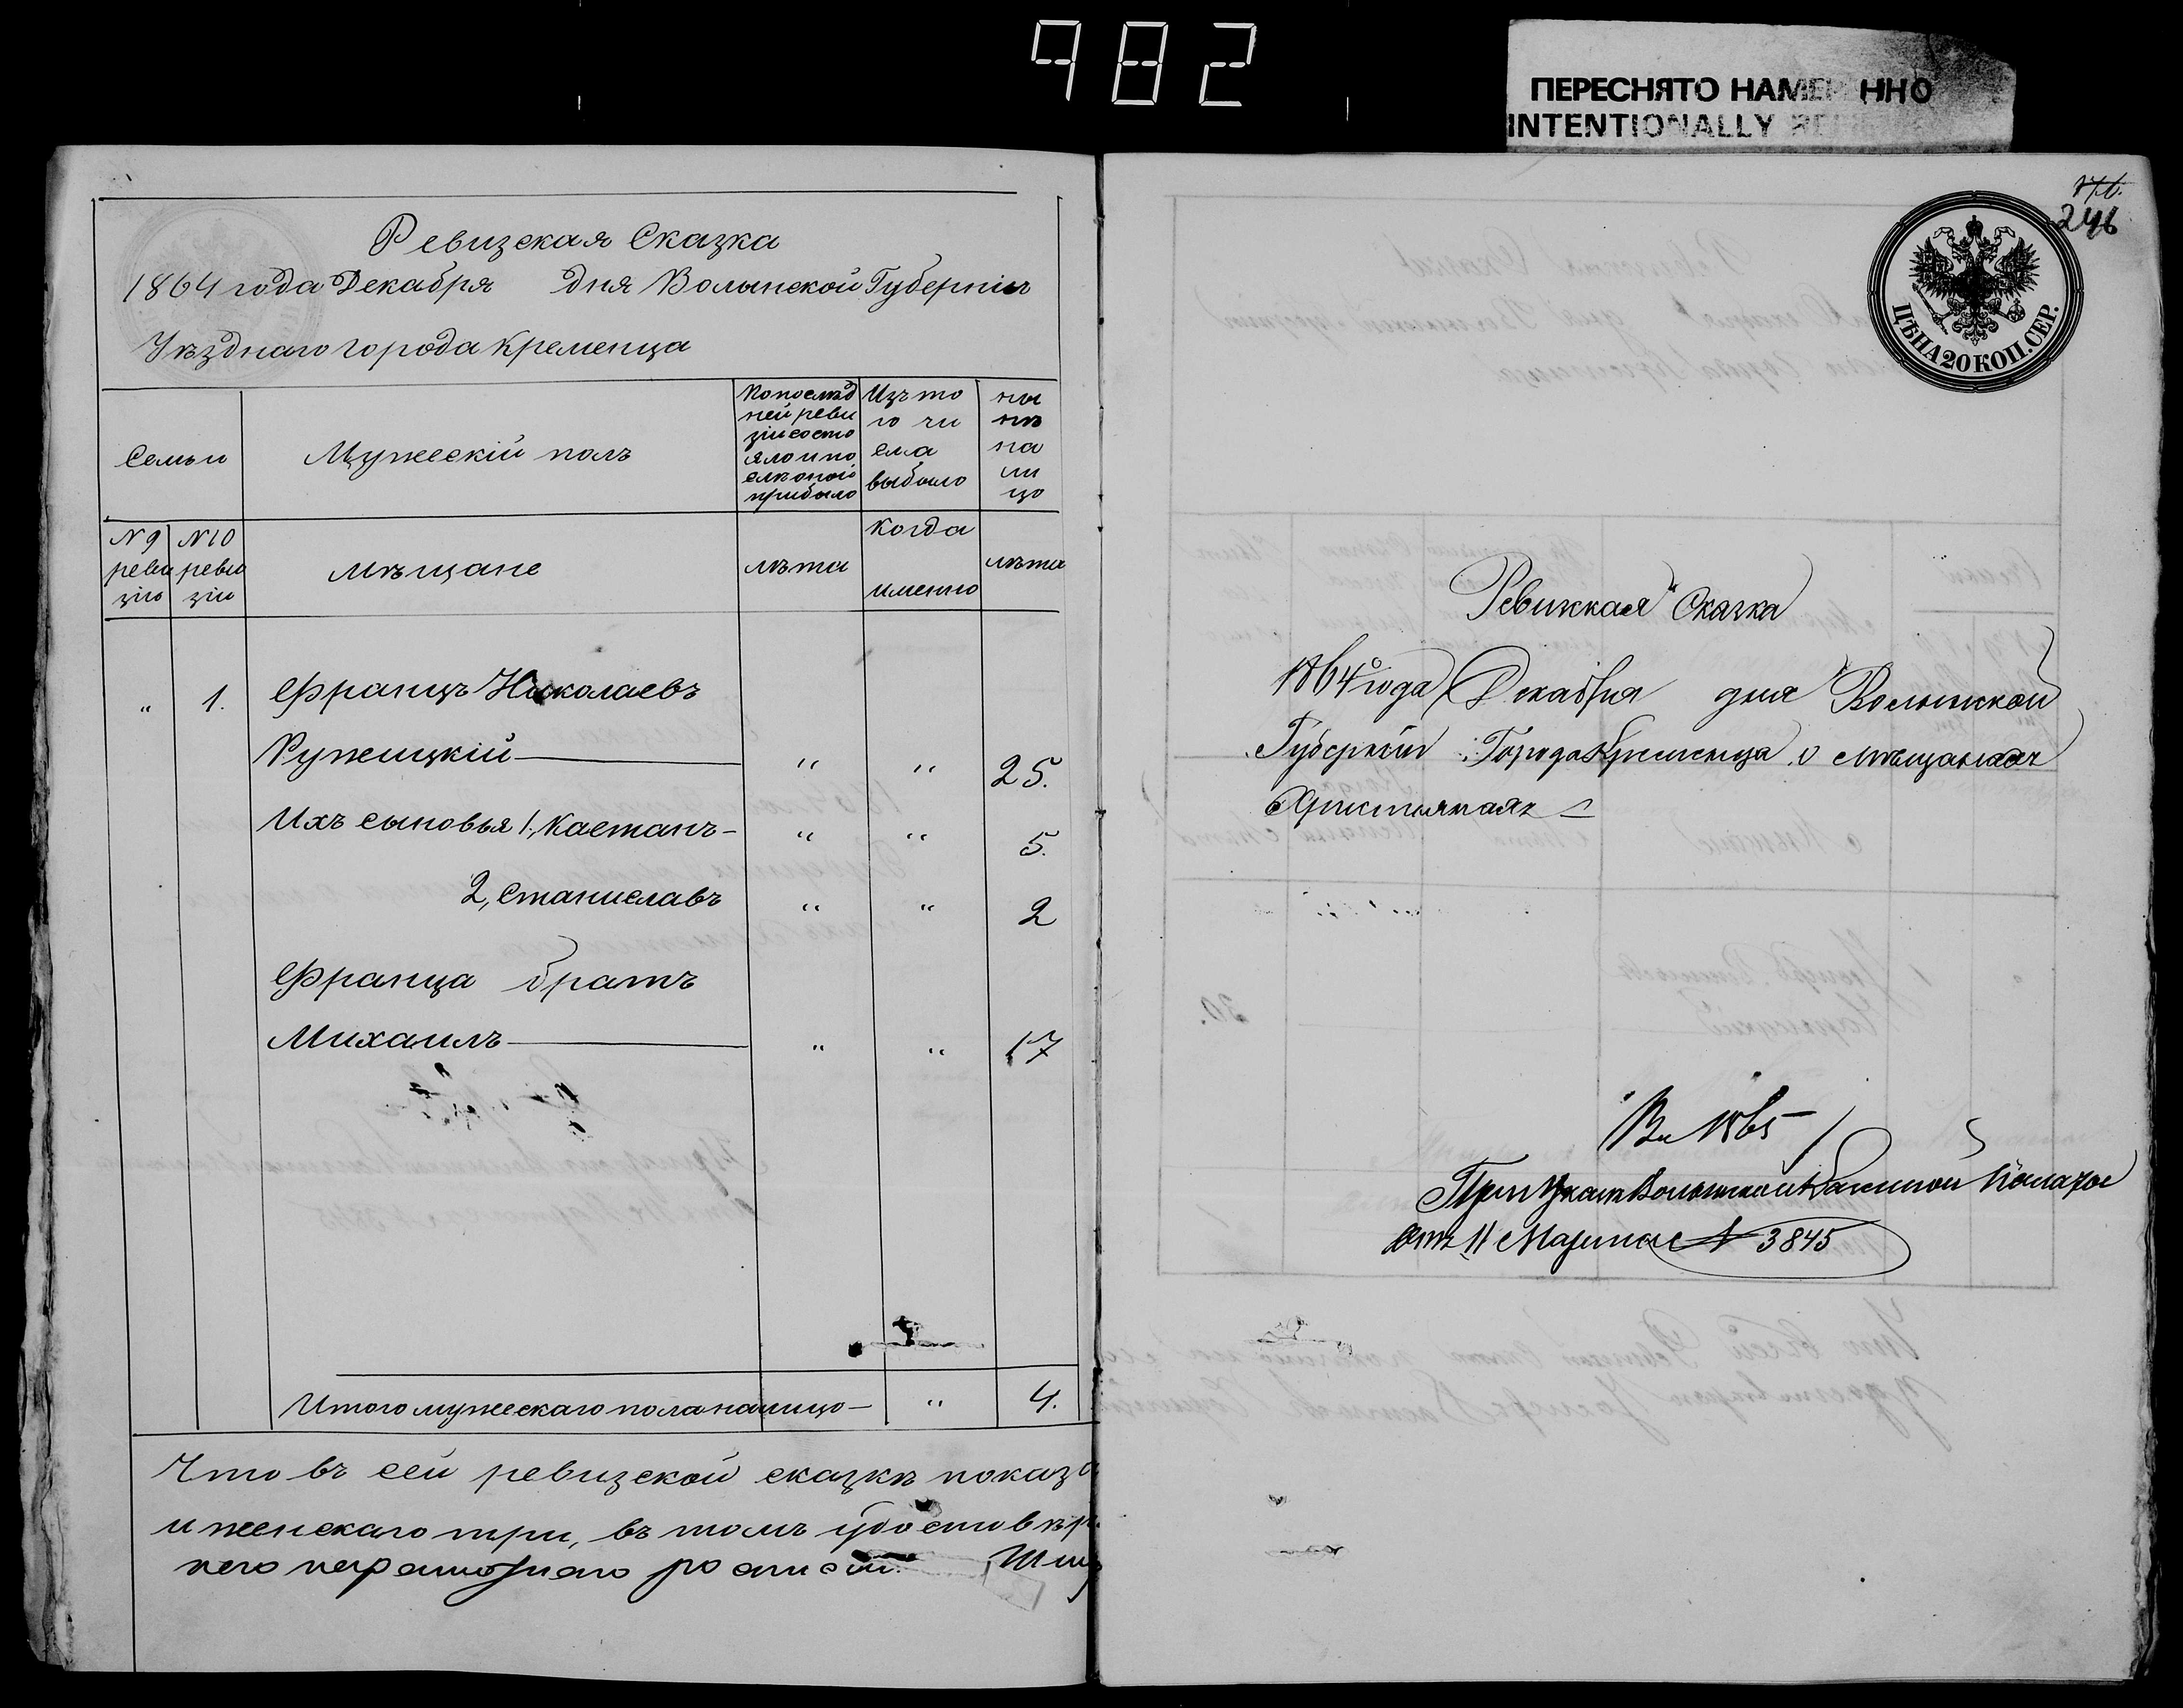 982
ПЕРЕСНЯТО НАМЕ ННО
INTENTIONALLY
Ревизская Сказка
1864 года Декабря дня Волынской Губерніи
Уѣзднаго города Кременца
Семьи
Мужескій полъ
По послѣд
ней реви
зіи состо
яло и по
слѣ оной
прибыло
Изъ то
го чи
сла
выбыло
ны
нѣ
на
ли
цо
№ 9
реви
зіи
№ 10
реви
зіи
Мѣщане
лѣта
когда
именно
лѣта
" 1. Францъ Николаевъ
Ружицкій " " 25.
Ихъ сыновья 1, Каетанъ " " 5.
2, Станиславъ " " 2
Франца братъ
Михаилъ " " 17
Итого мужескаго пола налицо " 4.
Что въ сей ревизской сказкѣ показ
и женскаго три, въ томъ удостовѣр
него неграмотнаго
176.
246
ЦѢНА 20 КОП. СЕР.
Ревижкая Сказка
1864 года Декабря дня Волынской
Губерніи Города Кременца о мѣщанахъ
Христіянахъ
Въ 1865
При Указѣ Волынской Казенной Палаты
отъ 11 Марта № 3845